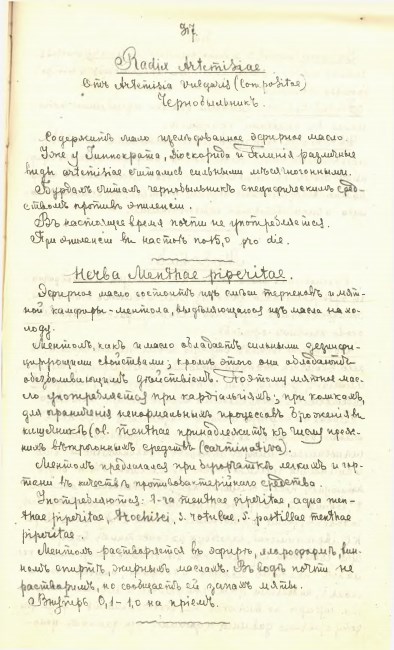 37
Radix Artemisiae.
Отъ Artemisia vulgaris (Compositae)
Чернобыльникъ.
Содержитъ мало изслѣдованное эфирное масло.
Уже у Гиппократа, Діоскорида и Плинія различные
виды artemisiae считались сильными мѣсячногонными.
Бурдахъ считалъ чернобыльникъ специфическимъ сред-
ствомъ противъ эпилепсіи.
Въ настоящее время почти не употребляется.
При эпилепсіи въ настояхъ по 15,0 pro die.
Herba Menthae piperitae.
Эфирное масло состоитъ изъ смѣси терпеновъ и мят-
ной камфоры - ментола, выдѣляющагося изъ масла на хо-
лоду.
Ментолъ, какъ и масло обладаетъ сильными дезинфи-
цирующими свойствами; кромѣ этого они обладаютъ
обезболивающимъ дѣйствіемъ. Поэтому мятное мас-
ло употребляется при кардіалгіяхъ; при коликахъ,
для ограниченія ненормальныхъ процессовъ броженія въ
кишечникѣ (ol. menthae принадлежитъ къ числу преж-
нихъ вѣтрогонныхъ средствъ (carminativa).
Ментолъ предлагался при бугорчаткѣ легкихъ и гор-
тани въ качествѣ противобактерійнаго средства.
Употребляются: 1-ra menthae piperitae, aqua men-
thae piperitae, trochisci, s. rotulae, s. pastillae menthae
piperitae.
Ментолъ растворяется въ эфирѣ, хлороформѣ, вин-
номъ спиртѣ, жирныхъ маслахъ. Въ водѣ почти не
растворимъ, но сообщаетъ ей запахъ мяты.
Внутрь 0,1 - 1,0 на пріемъ.